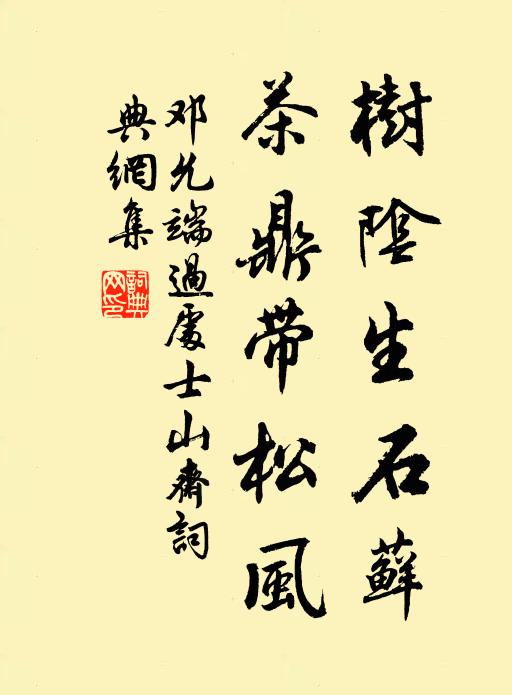 樹陰生石蘚
茶鼎带松風
邓允端過處士山齋詞
典網集
詞典網印